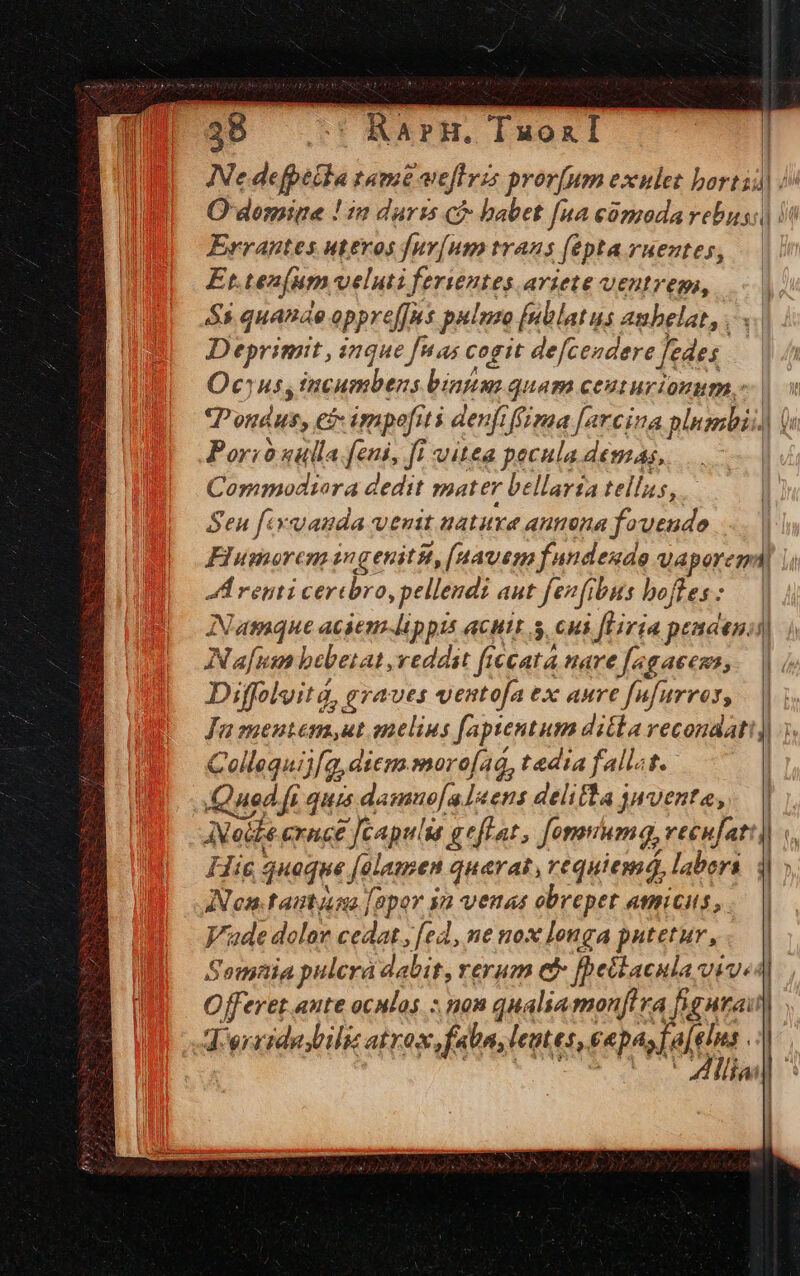 38 RAPH. THORI
Ne despecta tamē vestris prorsum exulet hortis
O domina! in duris & habet sua cōmoda rebus:
Errantes uteros sursum trans septa ruentes,
Et tensum veluti ferientes ariete ventrem,
Si quando oppressus pulmo sublatus anhelat,
Deprimit, inque suas cogit descendere sedes
Ocyus, incumbens binûm quam centurionum
Pondus, & imposîti densissima sarcina plumbi.
Porrò nulla seni, si vitea pocula demas,
Commodiora dedit mater bellaria tellus,
Seu servanda venit naturæ annona fovendo
Humorem ingenitū, suavem fundendo vaporem
Arenti cerebro, pellendi aut sensibus hostes:
Namque aciem lippis acuit, cui stiria pendens
Nasum hebetat, reddit siccatâ nare sagacem,
Dissolvitq, graves ventosa ex aure susurros,
In mentem, ut melius sapientum dicta recondat,
Colloquijsq, diem morosaq, tædia fallat.
Quod si quis damnosa luens delicta juventæ,
Nocte cruce scapulis gestat, somnumq, recusat,
Hic quoque solamen quærat, requiemq, labori
Non tantùm sopor in venas obrepet amicus,
Unde dolor cedat, sed, ne nox longa putetur,
Somnia pulcra dabit, rerum & spectacula viva
Offeret ante oculos: non qualia monstra figurat
Torrida bilis atrox, faba, lentes, cæpa, faselus
Allia